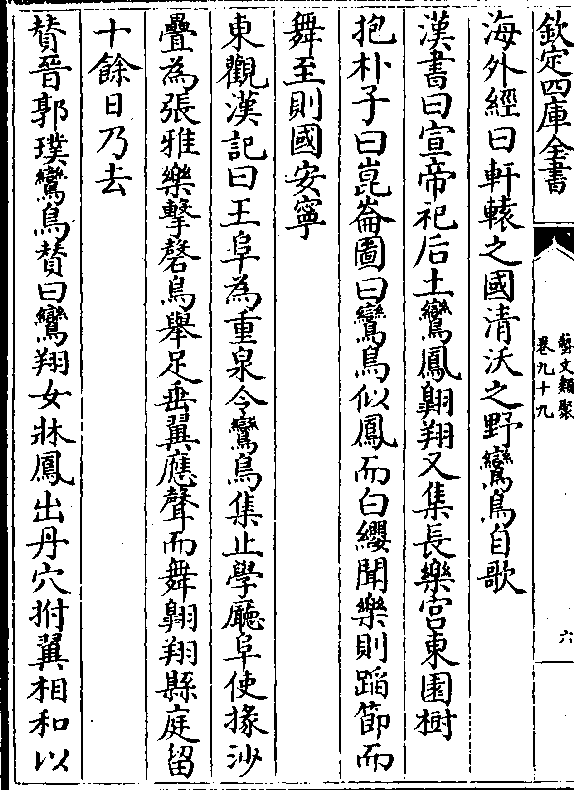 欽定四庫全書
藝文類聚
卷九十九
六
海外經曰軒轅之國清沃之野鸞鳥自歌
漢書曰宣帝祀后土鸞鳳翺翔又集長樂宮東園樹
抱朴子曰崑崙圖曰鸞鳥似鳳而白纓聞樂則蹈節而
舞至則國安寧
東觀漢記曰王阜為重泉令鸞鳥集止學廳阜使掾沙
疊為張雅樂擊磬鳥舉足垂翼應聲而舞翺翔縣庭留
十餘日乃去
賛晉郭璞鸞鳥賛曰鸞翔女牀鳳出丹穴拊翼相和以